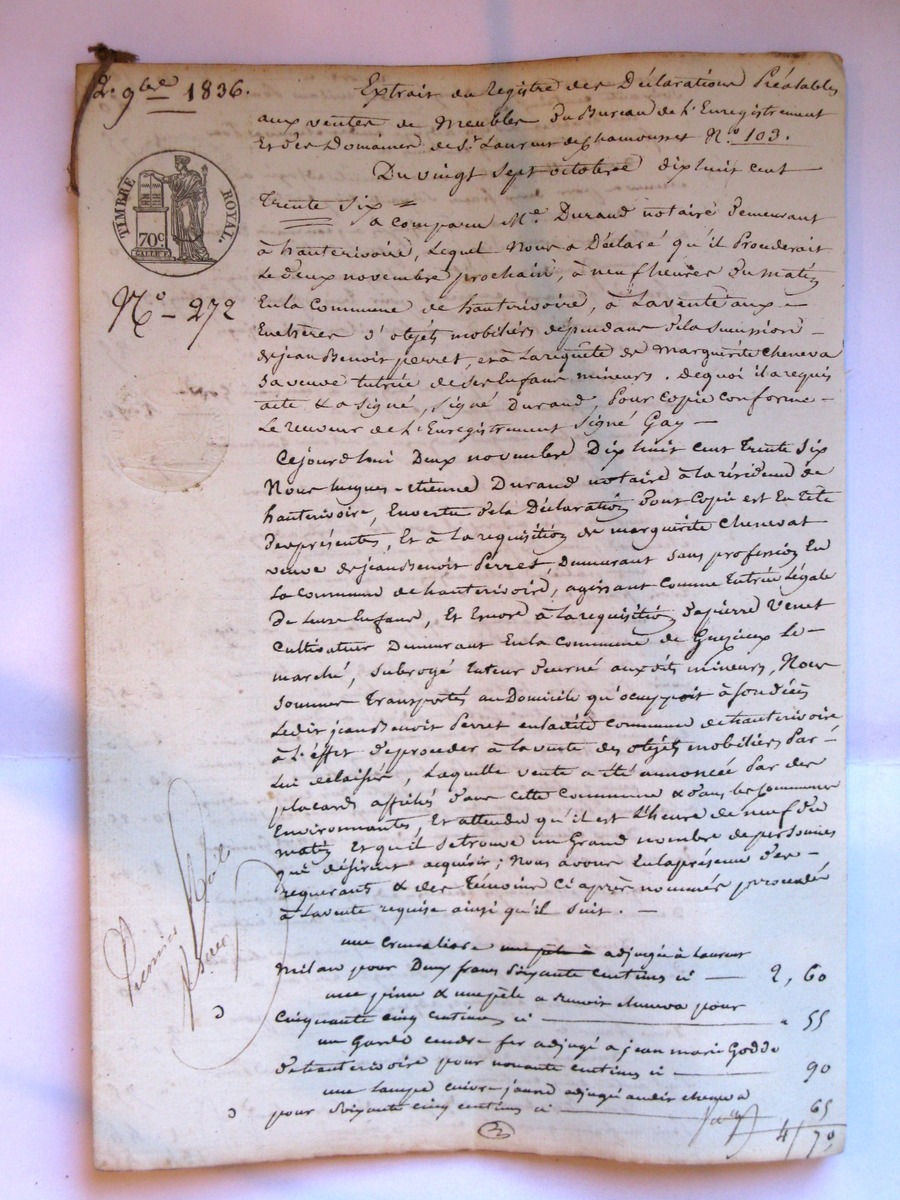 2. 9bre 1836.
Extrait du Registre des Déclarations Préalables
aux ventes de Meubles du Bureau de l'Enregistrement
et des Domaines de St. Laurent de Chamousset N.o 103.
Du vingt sept octobre dix huit cent
Trente Six =
TIMBRE ROYAL.
70c
N.o - 272
a comparu Me. Durand notaire demeurant
à hauterivoire, Lequel Nous a Déclaré qu'il Procederait
Le deux novembre prochain, à neuf heures du matin
En la Commune de hauterivoire, à La vente aux -
Encheres d'objets mobiliers dépendans de la succession -
de jean Benoit perret, et à La requête de Marguerite Cheneva
Sa veuve tutrice de ses Enfans mineurs. de quoi il a requis
acte & a Signé, Signé Durand, Pour Copie conforme -
Le receveur de l'Enregistrement Signé Gay -
Cejourd'hui Deux novembre Dix huit cent Trente Six
Nous Etienne Durand notaire à la résidence de
hauterivoire, En vertu de la Déclaration dont Copie est En tête
des présentes, Et à la requisition de marguerite Chenevat
veuve de jean Benoit Perret, Demeurant sans profession En
La Commune de hauterivoire, agissant Comme Tutrice Légale
De leurs Enfans, Et Encore à la requisition de pierre Venet
Cultivateur Demeurant En la Commune de Grezieux Le -
marché, Subrogé tuteur donné aux dits mineurs, Nous
Sommes Transportés au Domicile qu'occupoit à son décès
Ledit jean Benoit Perret en la dite Commune de hauterivoire
à L'effet de proceder à la vente des objets mobiliers Par -
Lui délaissés, Laquelle vente a été annoncée Par des
placards affichés dans cette Commune & dans les Communes
Environnantes, Et attendu qu'il est L'heure de neuf du
matin Et qu'il se trouve un Grand nombre de personnes
qui désirent acquérir; Nous avons En la présence des -
requerants & des Témoins Ci après nommés procedé
à La vente requise ainsi qu'il suit. -
Premier Rôle
une cremaliere adjugée à Laurent
Milan pour Deux francs Soixante centimes ci - 2, 60
une & une pèle a Cheneva pour
Cinquante cinq centimes ci - " 55
un Garde cendre fer adjugé a jean marie Godde
d'hauterivoire pour nonante centimes ci - 90
une lampe cuivre jaune adjugée audit Cheneva
pour Soixante cinq centimes ci - 65
4/70